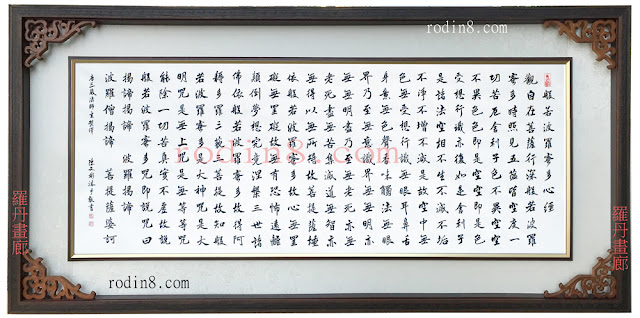 rodin8.com
般若波羅蜜多心經
觀自在菩薩行深般若波羅
蜜多時照見五蘊皆空度一
切苦厄舍利子色不異空空
不異色色即是空空即是色
受想行識亦復如是舍利子
是諸法空相不生不滅不垢
不淨不增不減是故空中無
色無受想行識無眼耳鼻舌
身意無色聲香味觸法無眼
界乃至無意識界無無明亦
無無明盡乃至無老死亦無
老死盡無苦集滅道無智亦
無得以無所得故菩提薩埵
依般若波羅蜜多故心無罣
礙無罣礙故無有恐怖遠離
顛倒夢想究竟涅槃三世諸
佛依般若波羅蜜多故得阿
耨多羅三藐三菩提故知般
若波羅蜜多是大神咒是大
明咒是無上咒是無等等咒
能除一切苦真實不虛故說
般若波羅蜜多咒即說咒曰
揭諦揭諦 波羅揭諦
波羅僧揭諦 菩提薩婆訶
唐三藏法師玄奘譯
敬書
rodin8.com
羅丹畫廊
羅丹畫廊
rodin8.com